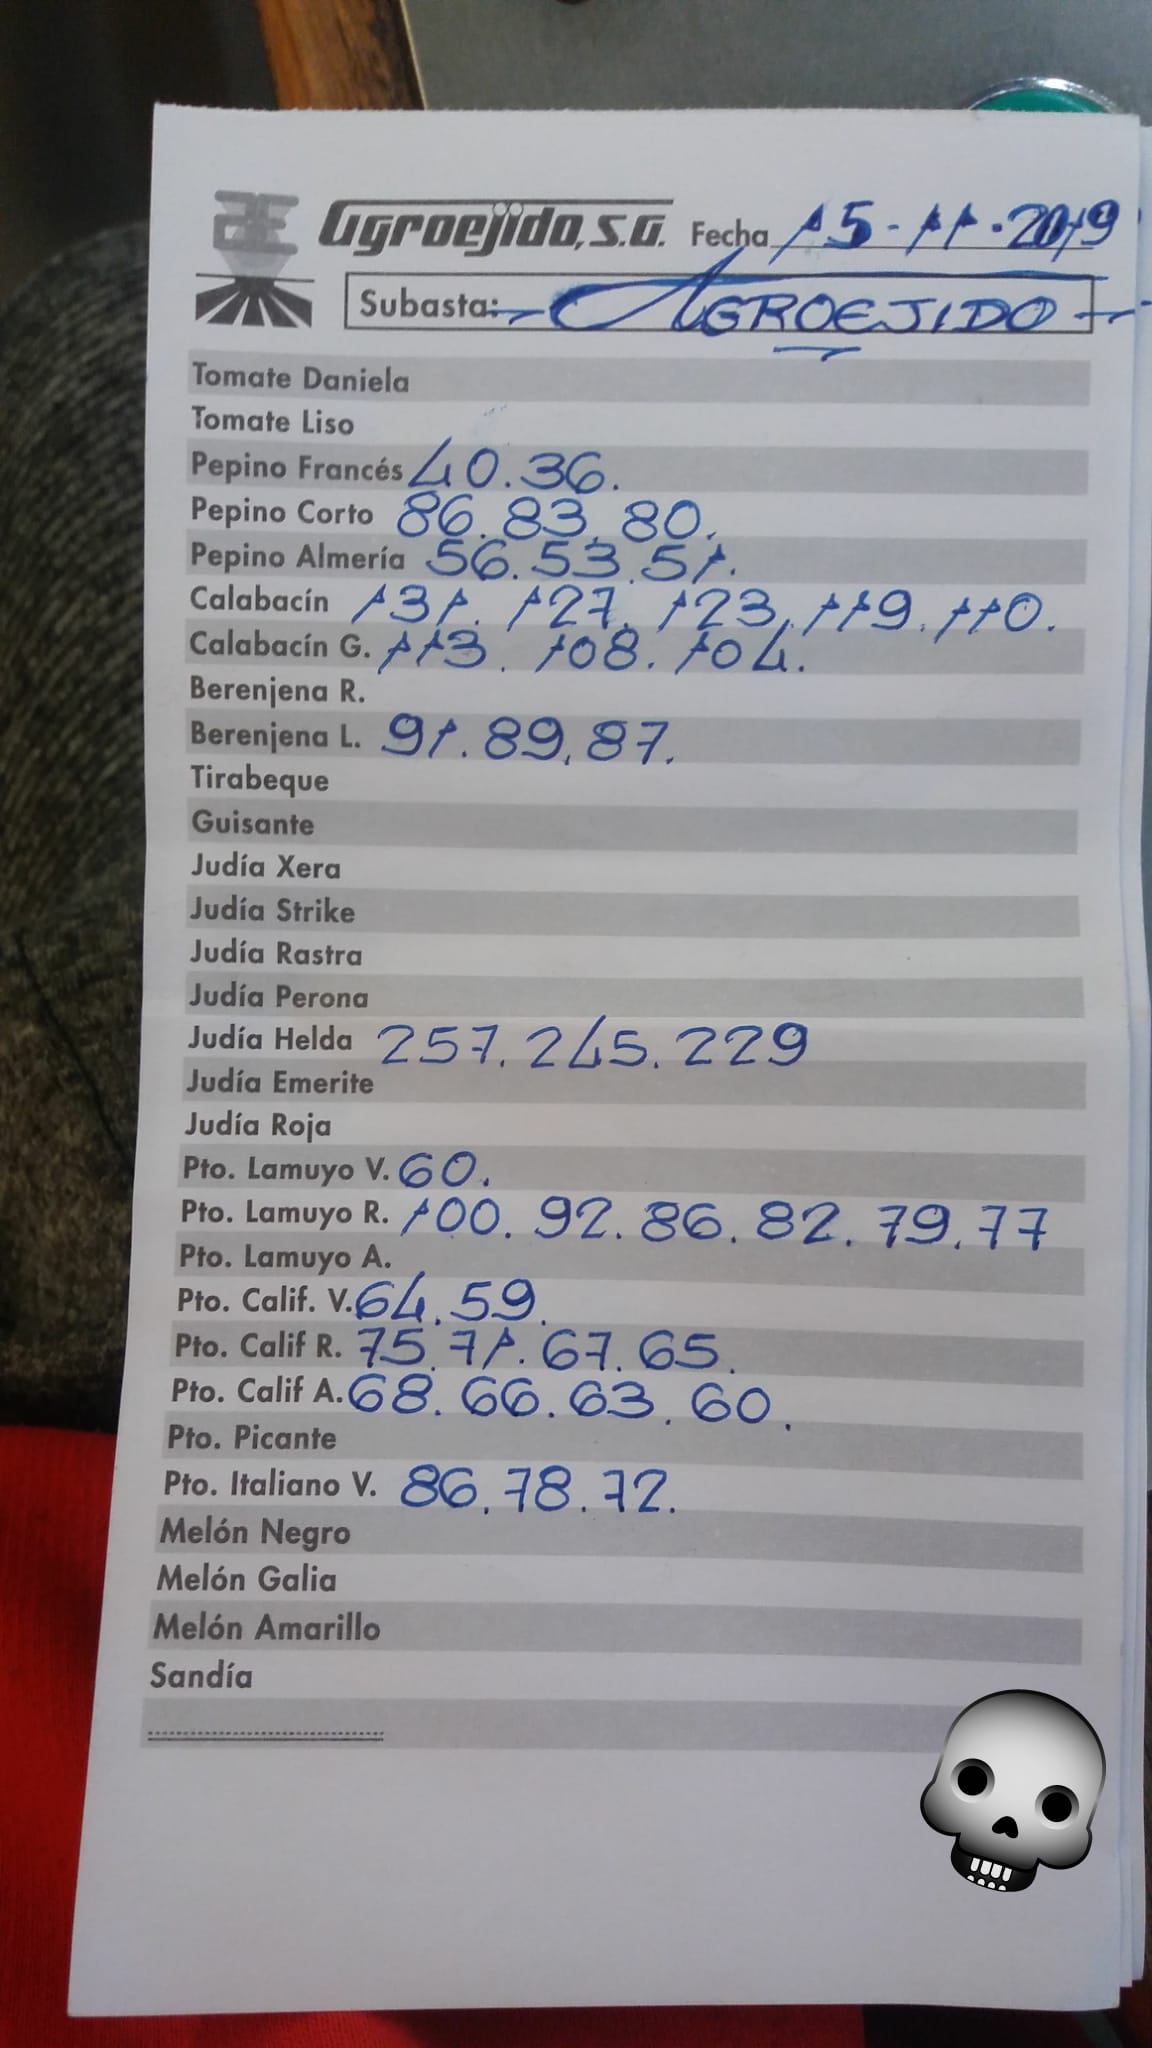 Agroejido, S.A. Fecha 15-11-2019
Subasta: AGROEJIDO
Tomate Daniela
Tomate Liso
Pepino Francés 40.36.
Pepino Corto 86.83.80.
Pepino Almería 56.53.51.
Calabacín 131.127.123.119.110.
Calabacín G. 113.108.104.
Berenjena R.
Berenjena L. 91.89.87.
Tirabeque
Guisante
Judía Xera
Judía Strike
Judía Rastra
Judía Perona
Judía Helda 257.245.229
Judía Emerite
Judía Roja
Pto. Lamuyo V. 60.
Pto. Lamuyo R. 100.92.86.82.79.77
Pto. Lamuyo A.
Pto. Calif. V. 64.59.
Pto. Calif R. 75.71.67.65.
Pto. Calif A. 68.66.63.60.
Pto. Picante
Pto. Italiano V. 86.78.72.
Melón Negro
Melón Galia
Melón Amarillo
Sandía